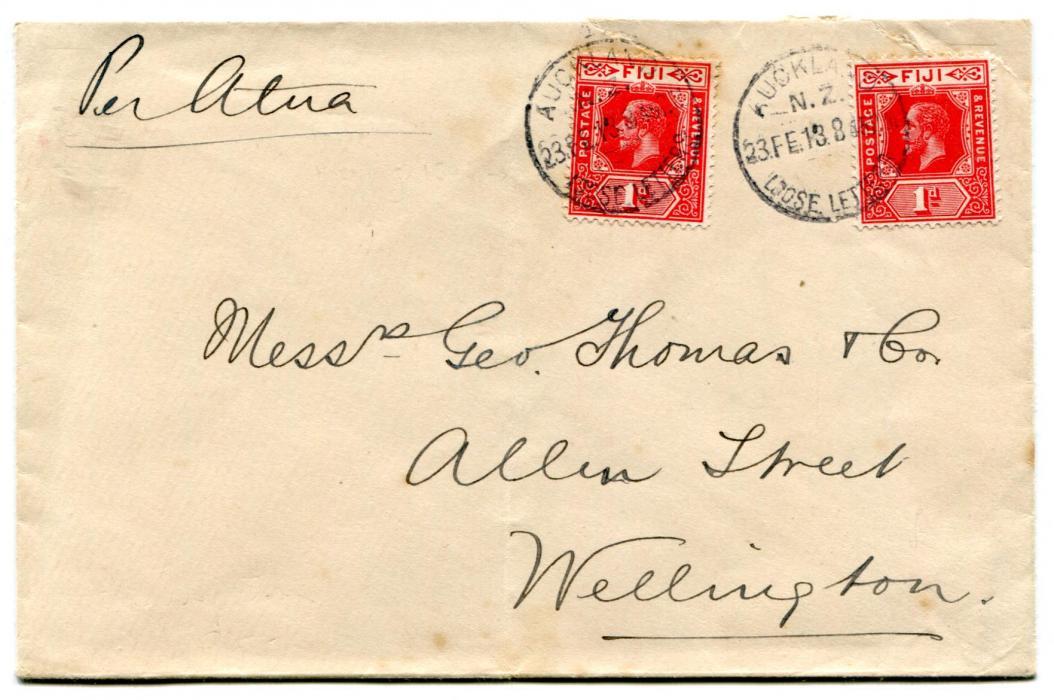 Per Atua
AUCKLA
N.Z.
LOOSE LETTER
FIJI
POSTAGE
& REVENUE
1d
AUCKLA
N.Z.
23.FE.18.8
LOOSE LETT
FIJI
POSTAGE
& REVENUE
1d
Messrs Geo. Thomas & Co.
Allen Street
Wellington.